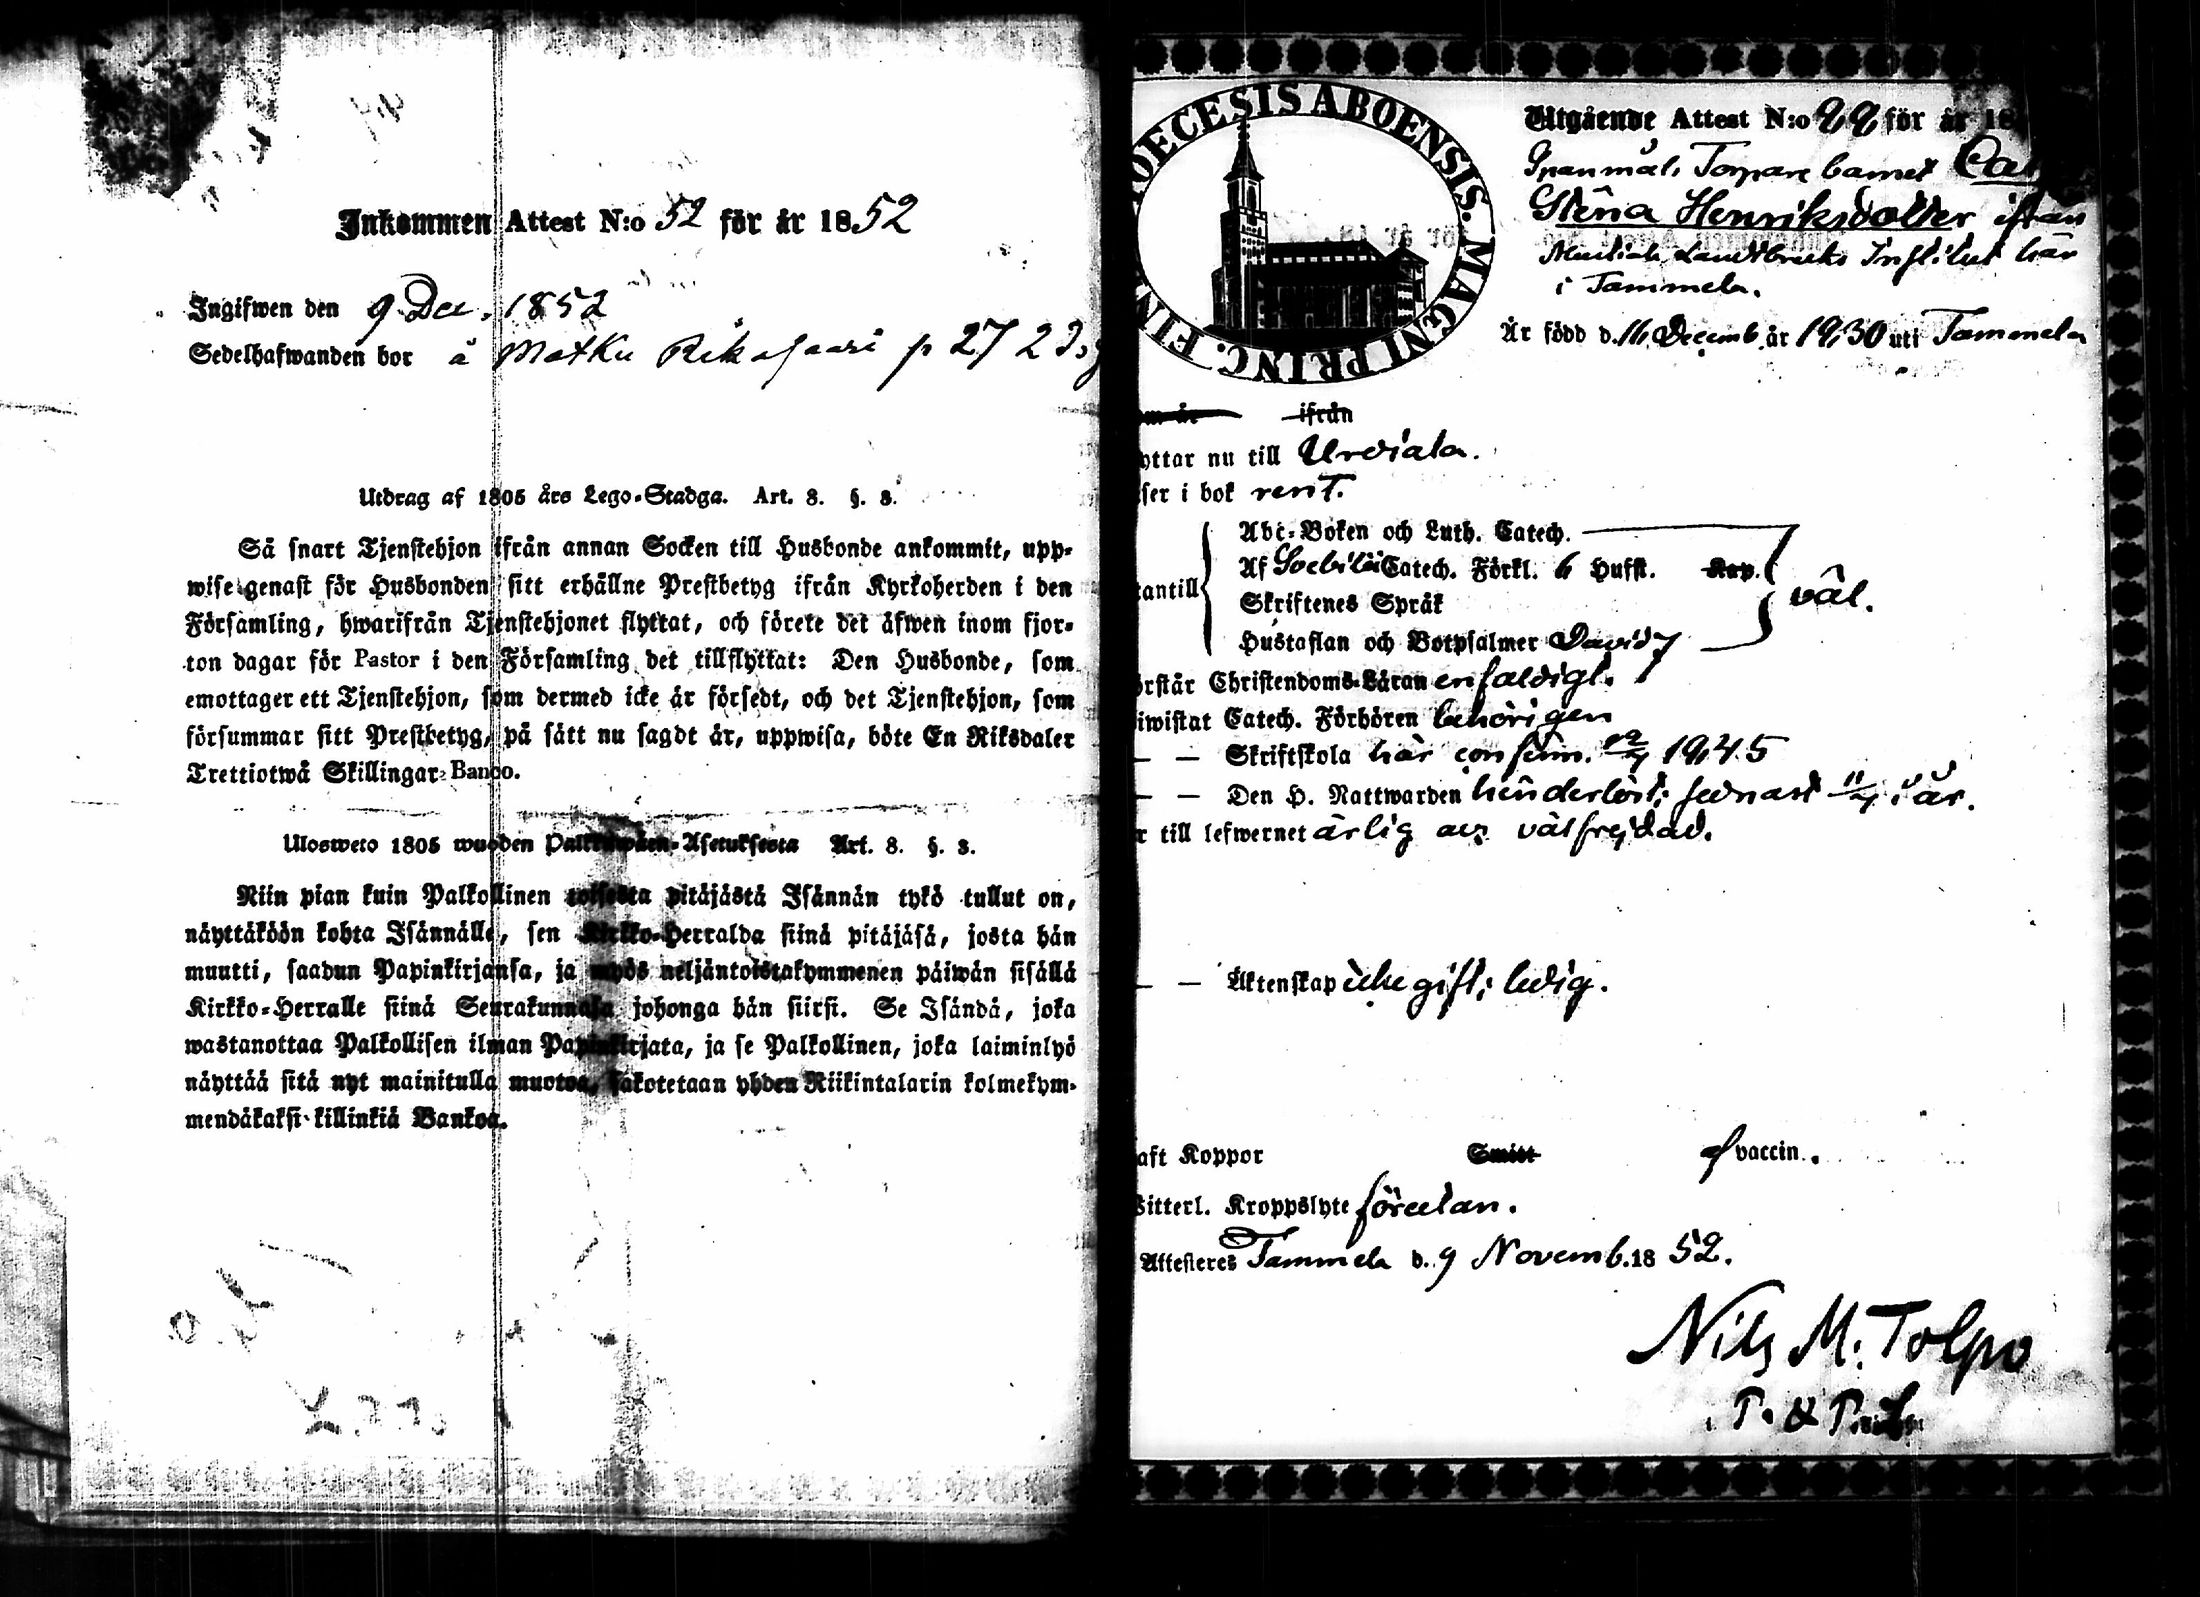 Inkommen Attest N:o 52 för år 1852
Ingifwen den 9 Dec. 1852
Sedelhafwanden bor å Matku
Utdrag af 1805 års Lego-Stadga. Art. 8. §. 3.
Så snart Tjenstehjon ifrån annan Socken till Husbonde ankommit, upp-
wise genast för Husbonden sitt erhållne Prestbetyg ifrån Kyrkoherden i den
Församling, hwarifrån Tjenstehjonet flyttat, och förete det äfwen inom fjor-
ton dagar för Pastor i den Församling det tillflyttat: Den Husbonde, som
emottager ett Tjenstehjon, som dermed icke är försedt, och det Tjenstehjon, som
försummar sitt Prestbetyg, på sätt nu sagdt är, uppwisa, böte En Riksdaler
Trettiotwå Skillingar Banco.
Ulosweto 1805 wuoden Palkkawäen-Asetuksesta Art. 8. §. 3.
Niin pian kuin Palkollinen toisesta pitäjästä Isännän tykö tullut on,
näyttäköön kohta Isännälle, sen Kirkko-Herralda siinä pitäjäsä, josta hän
muutti, saadun Papinkirjansa, ja myös neljäntoistakymmenen päiwän sisällä
Kirkko-Herralle siinä Seurakunnasa johonga hän siirsi. Se Isändä, joka
wastanottaa Palkollisen ilman Papinkirjata, ja se Palkollinen, joka laiminlyö
näyttää sitä nyt mainitulla muotoa, sakotetaan yhden Riikintalarin kolmekym-
mendäkaksi killinkiä Bankoa.
DIOECESIS ABOENSIS. MAGNI PRINC. FIN
Utgående Attest N:o för år 18
Torpare barnet
Stina Henriksdotter ifrån
Mustiala Landtbruks Institut här
i Tammela.
Är född d. 16 Decemb. år 1830 uti Tammela
ifrån
yttar nu till Urdiala.
ser i bok rent.
Abc-Boken och Luth. Catech.
Af Catech. Förkl. 6 Hufst. Kap.
tantill Skriftenes Språk väl.
Hustaflan och Botpsalmer Davids
rstår Christendoms-Läran enfaldigt.
iwistat Catech. Förhören behörigen
— — Skriftskola här 1845
— — Den H. Nattwarden hinderlöst; sednast i år.
r till lefwernet ärlig och välfrejdad.
— — Äktenskap icke gift; ledig.
aft Koppor Smitt af vaccin.
Witterl. Kroppslyte förutan.
Attesteres Tammela d. 9 Novemb. 18 52.
Nils M. Tolpo
P. & P.